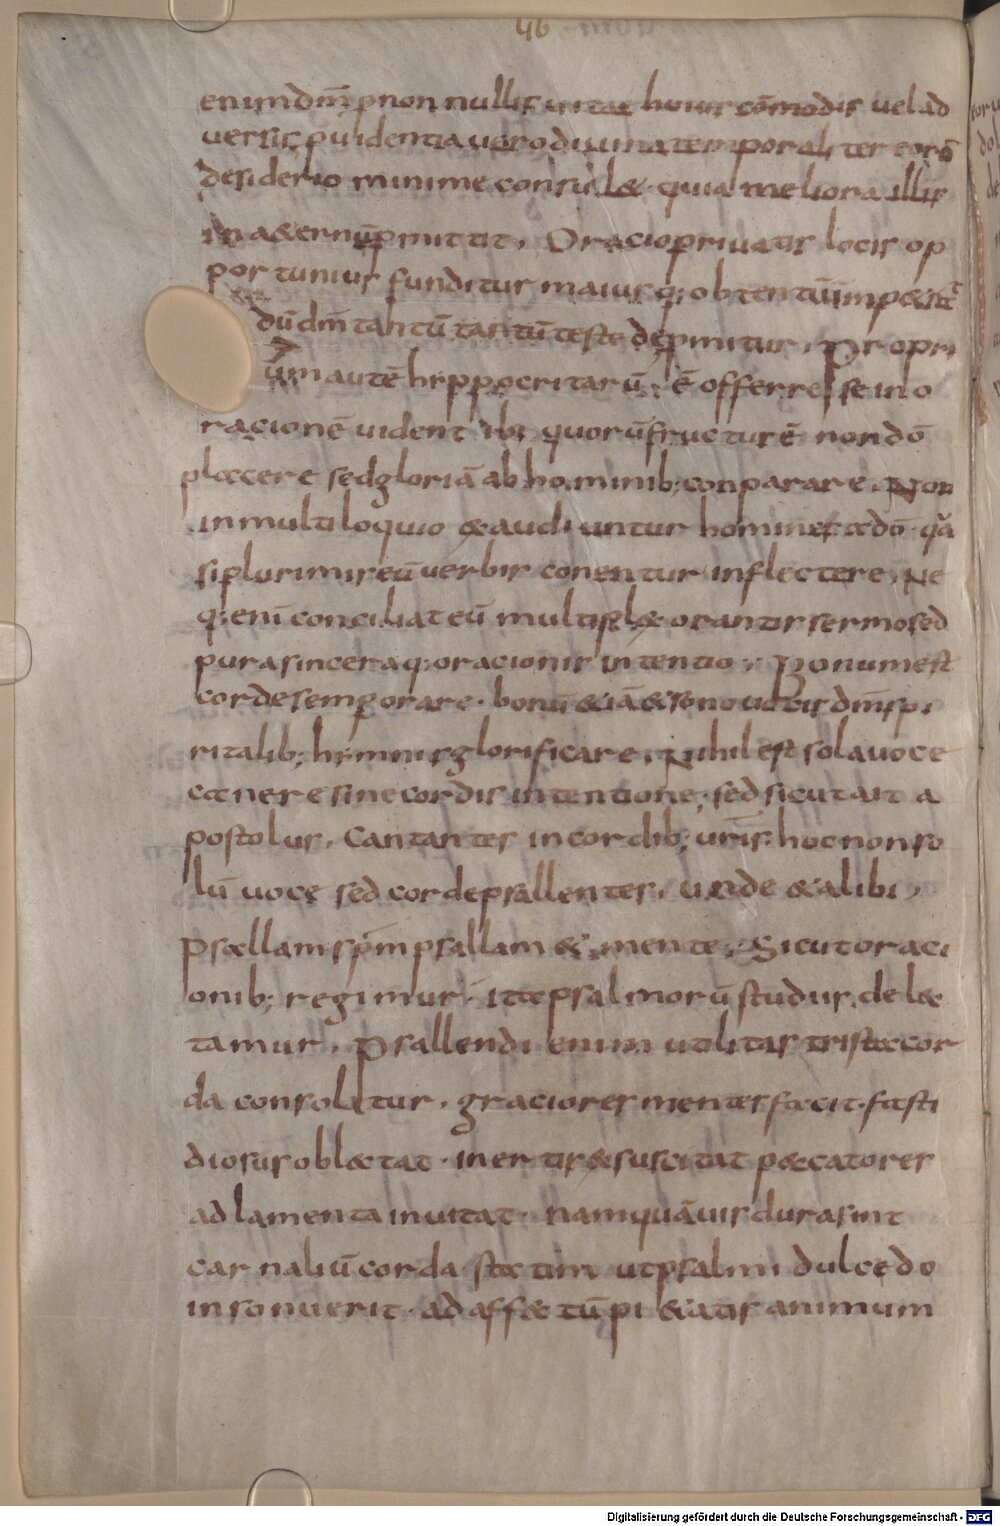 enim dm̄ pro nonnullis uitae huius cōmodis uel ad
uersis, puidentia uero diuina temporaliter eorū
desiderio minime consul& · quia meliora illis
in a&ernū pmittit, Oracio priuatis locis op
portunius funditur maiusq; obtentū imp&rat
dū dm̄ tantū tantū teste depmitur, Propri
ūm autē hyppocritarū, ē offerre se in o
racionē uidentibus quorū fructus ē non dō
placere sed gloriā ab hominib; conparare, Non
in multiloquio &audiuntur homines a dō · quā
si plurimis eū uerbis conentur inflectere, Ne
q; enī conciliat eū multipl& orantis sermo sed
pura sinceraq; oracionis intentio, Bonum est
corde semp orare · bonū &iā & sono uocis dm̄ spi
ritalib; hymnis glorificare, Nihil est sola uoce
canere sine cordis intentione, sed sicut ait a
postolus, Cantantes in cordib; uris: hoc non so
lū uoce sed corde psallentes, unde & alibi,
Psallam spm psallam & mente, Sicut oraci
onib; regimur · ita psalmorū studiis del&
tamur, Psallendi enim utilitas tristia cor
da consolatur, graciores mentes facit · fasti
diosus oblectat · inertis &suscitat peccatores
ad lamenta inuitat · nam quāuis dura sint
carnaliū corda statim ut psalmi dulcedo
insonuerit · ad aff&tū pi&atis animum
Digitalisierung gefördert durch die Deutsche Forschungsgemeinschaft - DFG